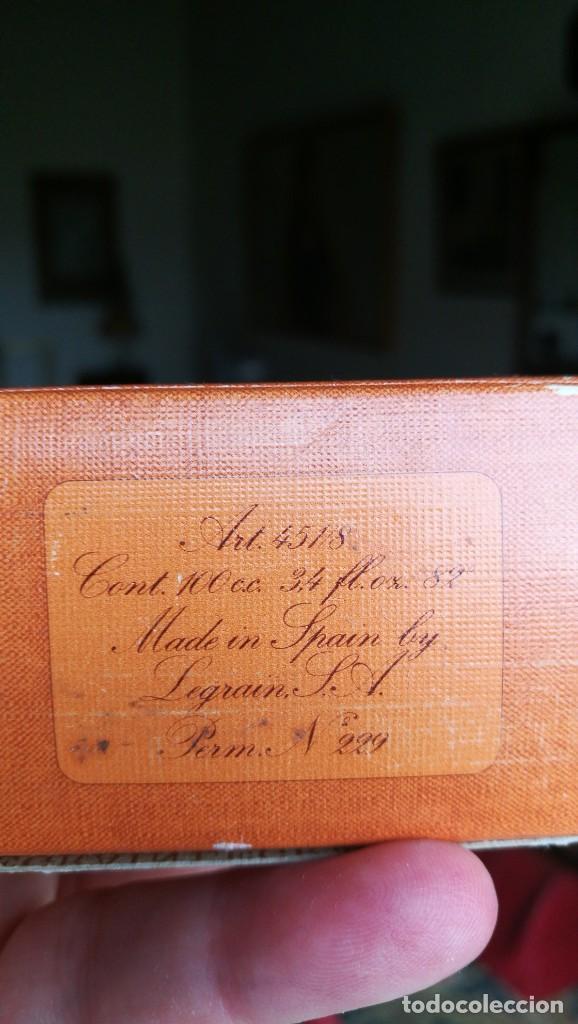 Art. 4518
Cont. 100 c.c. 3,4 fl. oz. 82°
Made in Spain by
Legrain, S.A.
Perm. Nº 229
todocoleccion